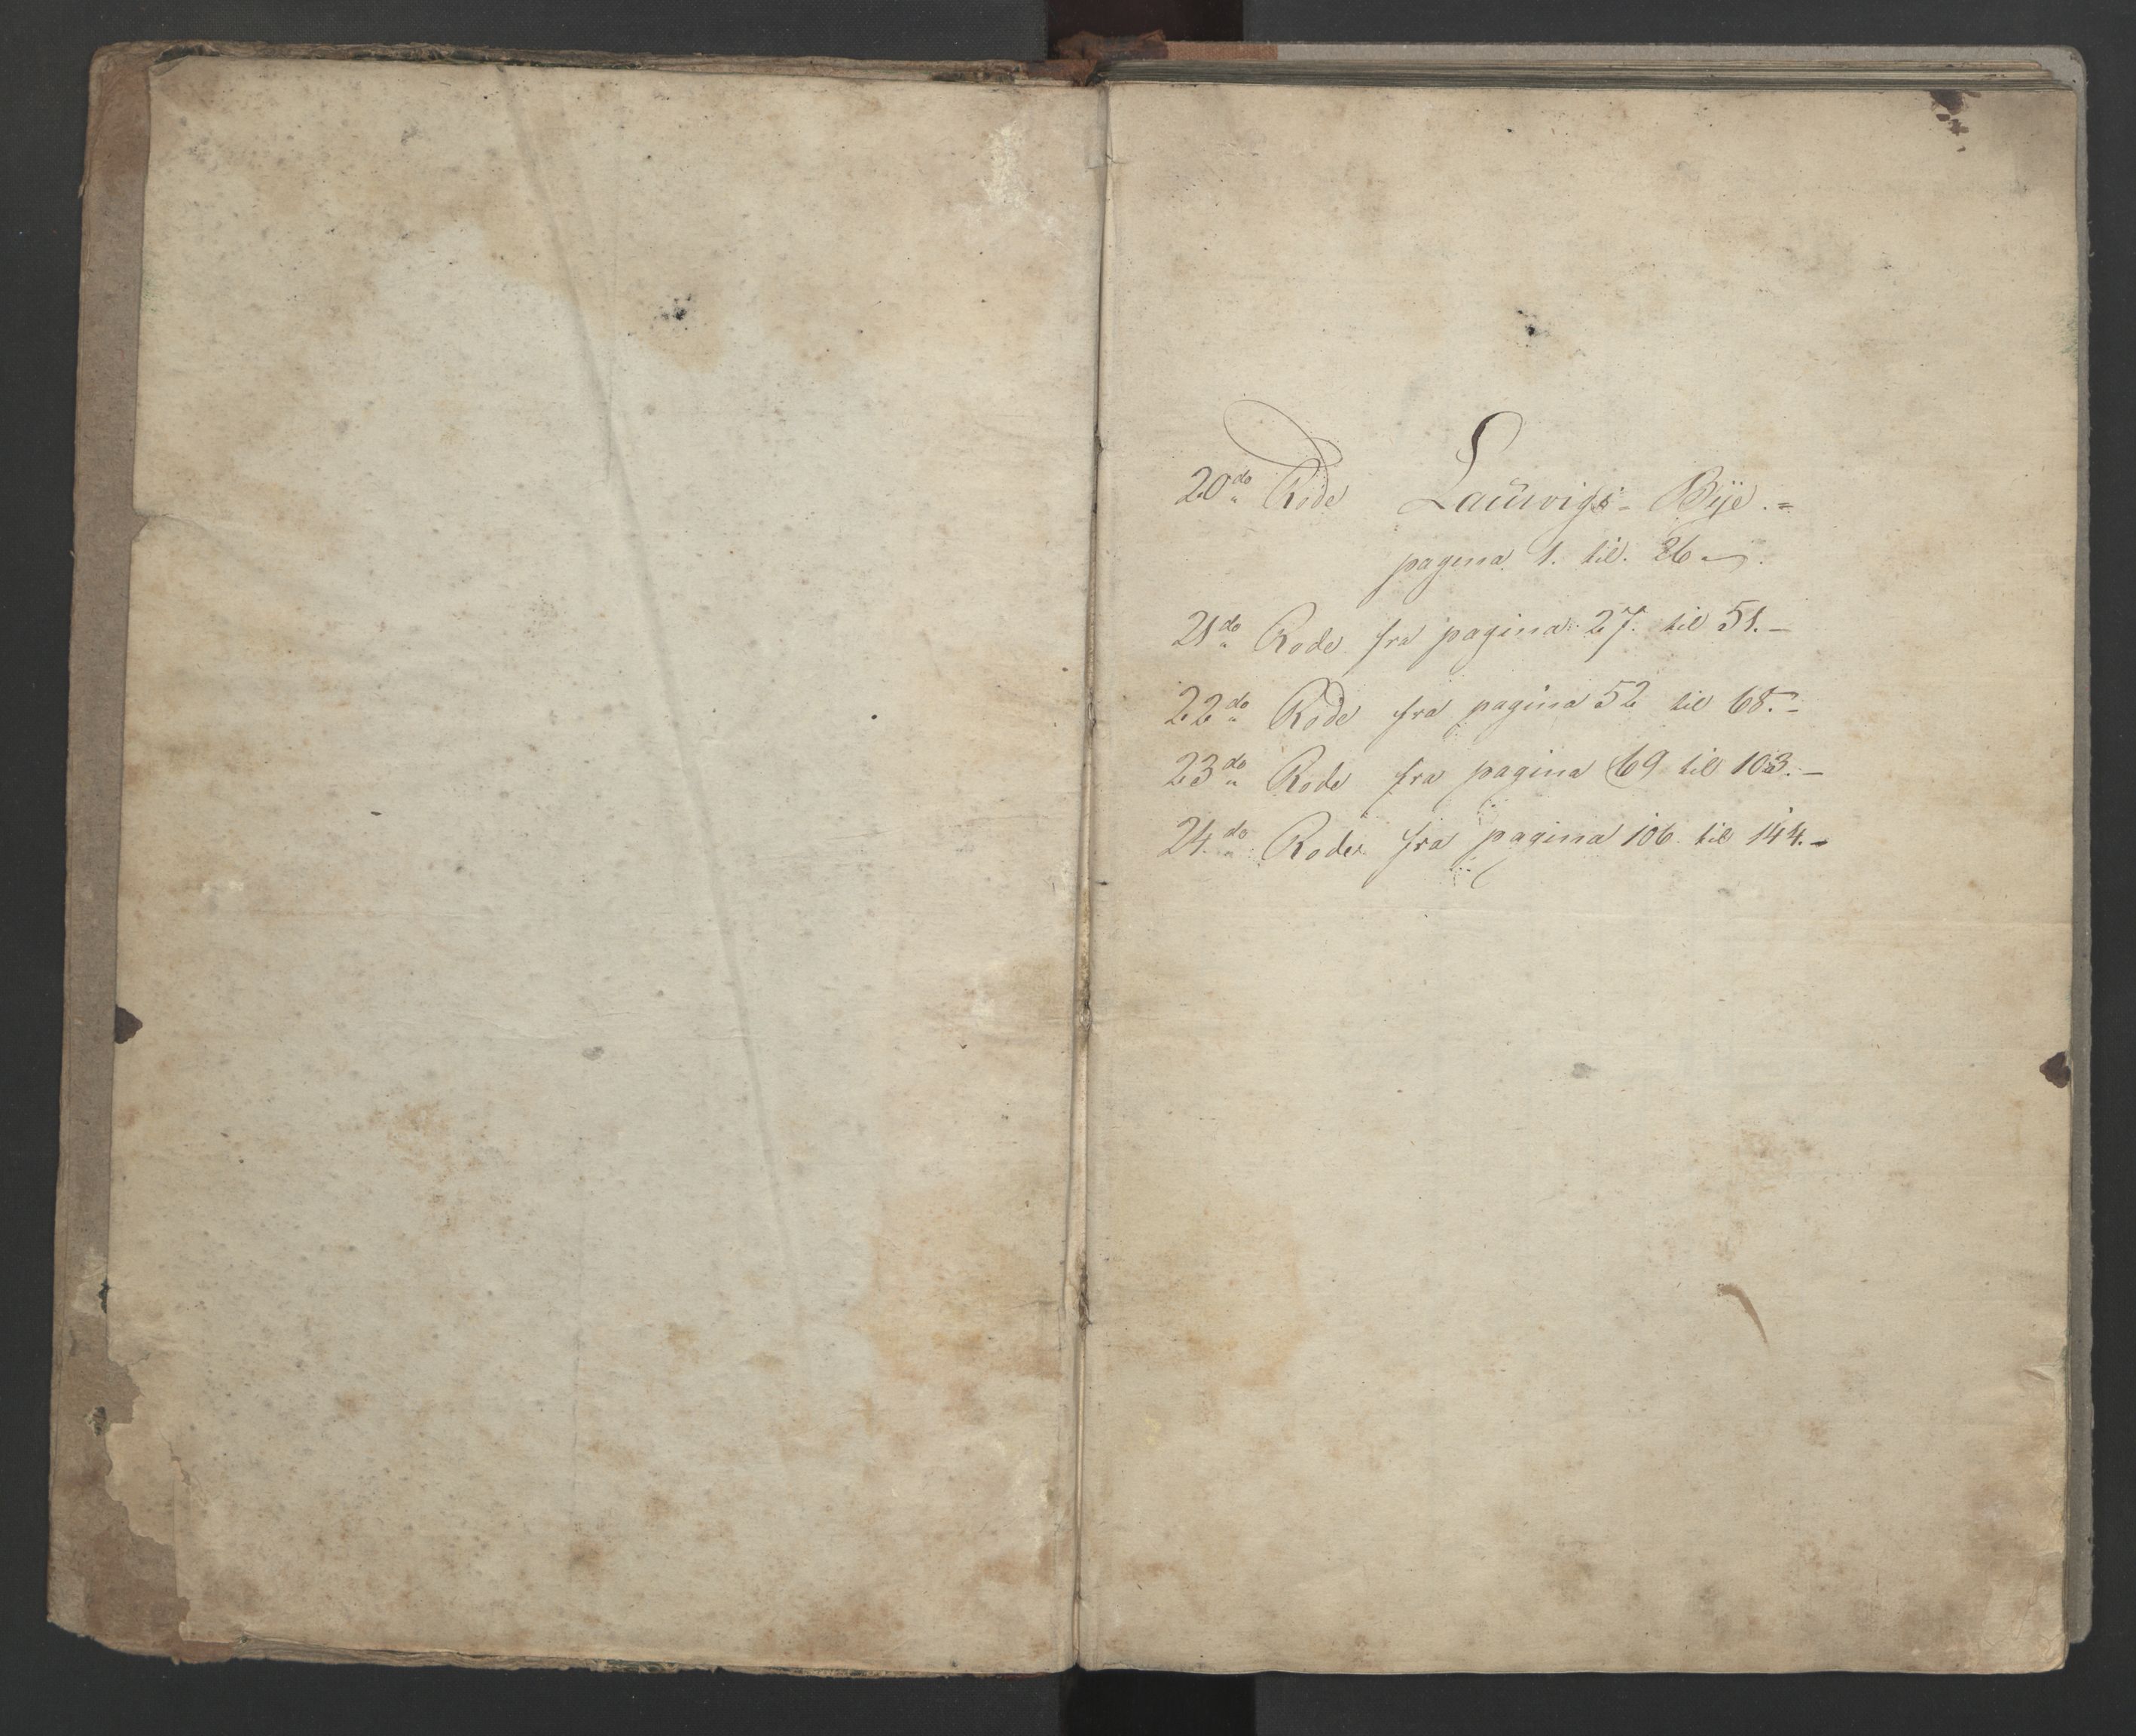 20de Rode Laurvigs - Bÿe. =
pagina 1. til. 26
21de Rode fra pagina 27. til 51. -
22de Rode fra pagina 52 til 68. -
23de Rode fra pagina 69 til 103. -
24de Rode fra pagina 106 til 144. -